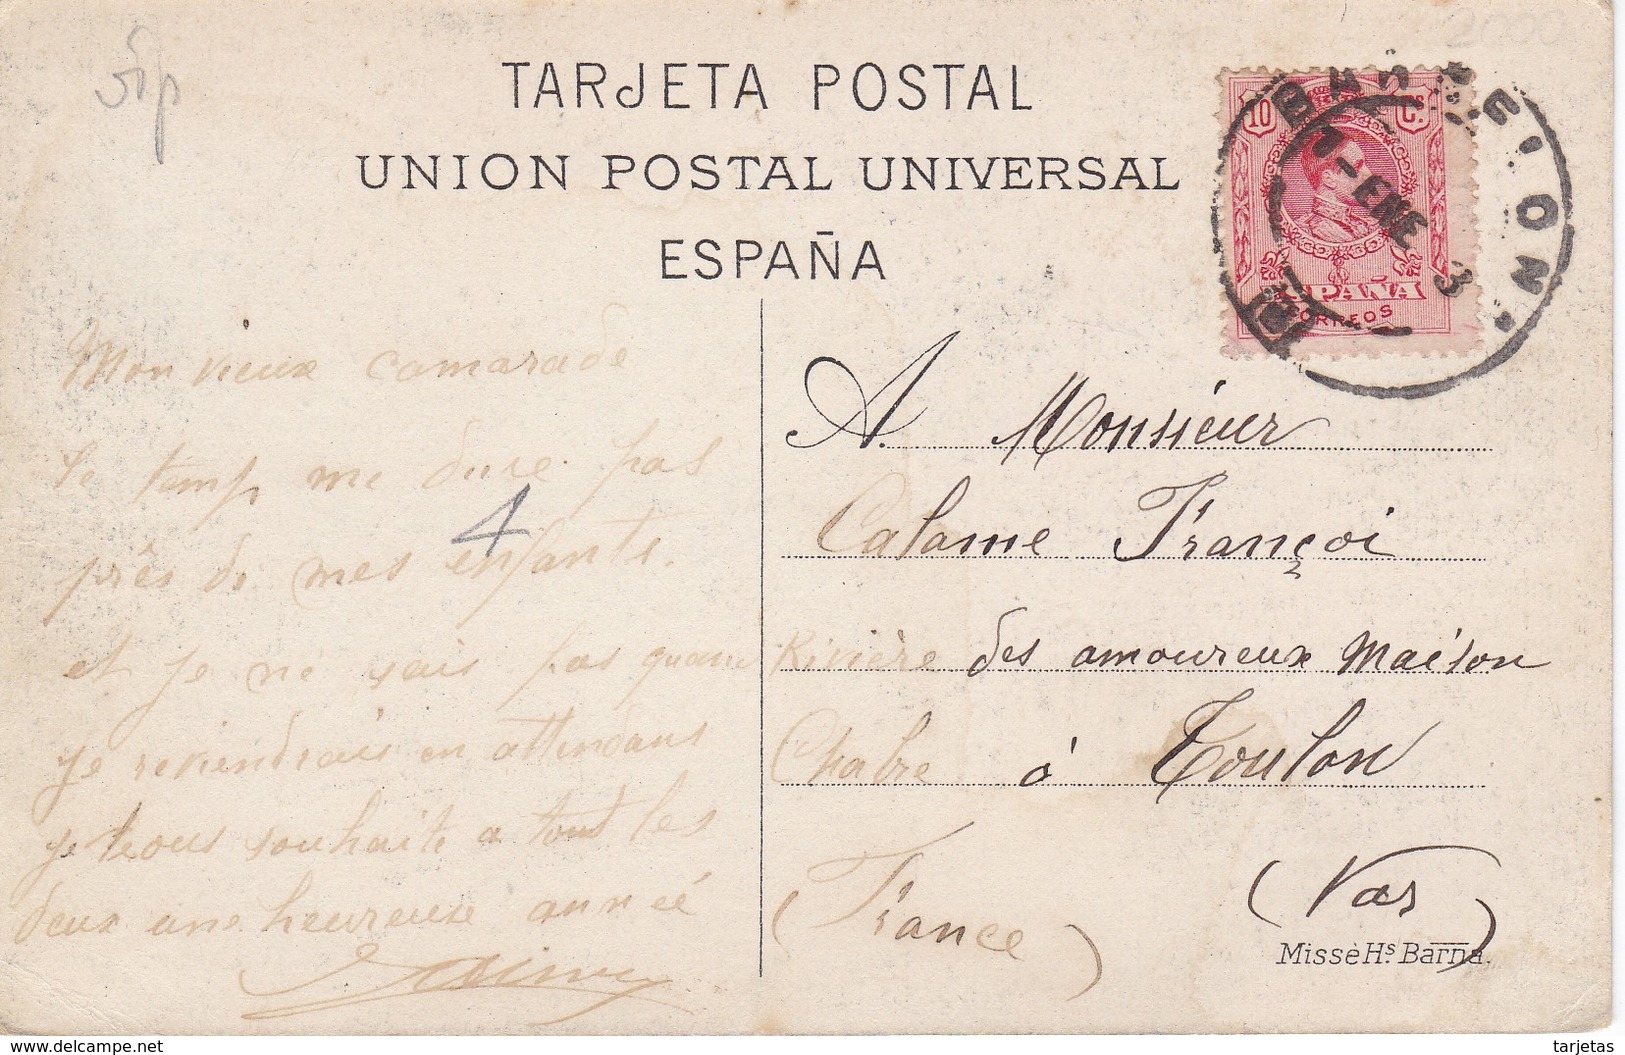 TARJETA POSTAL
UNION POSTAL UNIVERSAL
ESPAÑA
10 Cs.
ESPAÑA
CORREOS
BARCELONA
1-ENE 3
Mon vieux camarade
le temp me dure pas
près de mes enfants.
et je ne sais pas quand
je reviendrais en attendans
je vous souhaite a tout les
deux une heureuse année
4
A. Monsieur
Calame Françoi
Rivière des amoureux Maison
Chabre à Toulon
(France) (Var)
Missè Hs. Barna.
www.delcampe.net
tarjetas